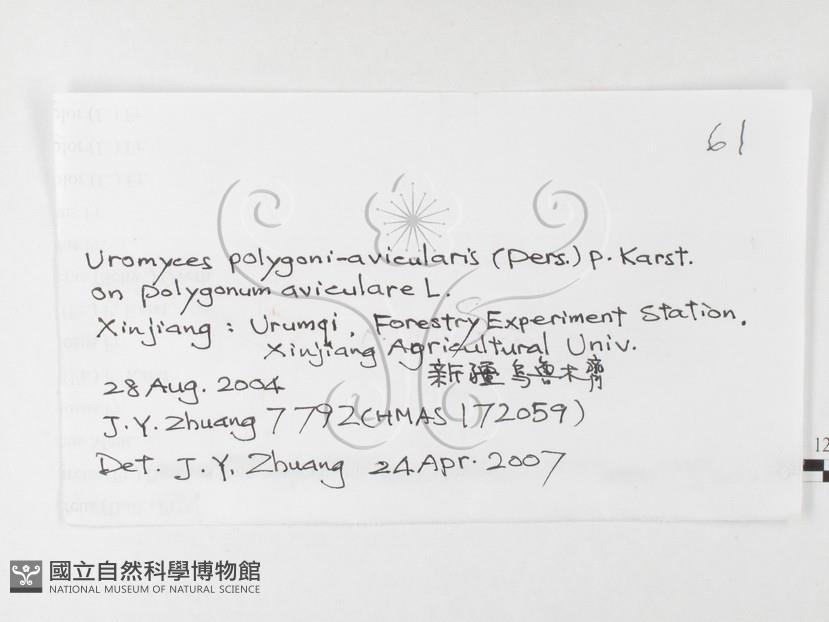 61
Uromyces polygoni-avicularis (Pers.) P. Karst.
on Polygonum aviculare L.
Xinjiang : Urumqi, Forestry Experiment Station,
Xinjiang Agricultural Univ.
新疆烏魯木齊
28 Aug. 2004
J. Y. Zhuang 7792 (HMAS 172059)
Det. J. Y. Zhuang 24 Apr. 2007
12
國立自然科學博物館
NATIONAL MUSEUM OF NATURAL SCIENCE